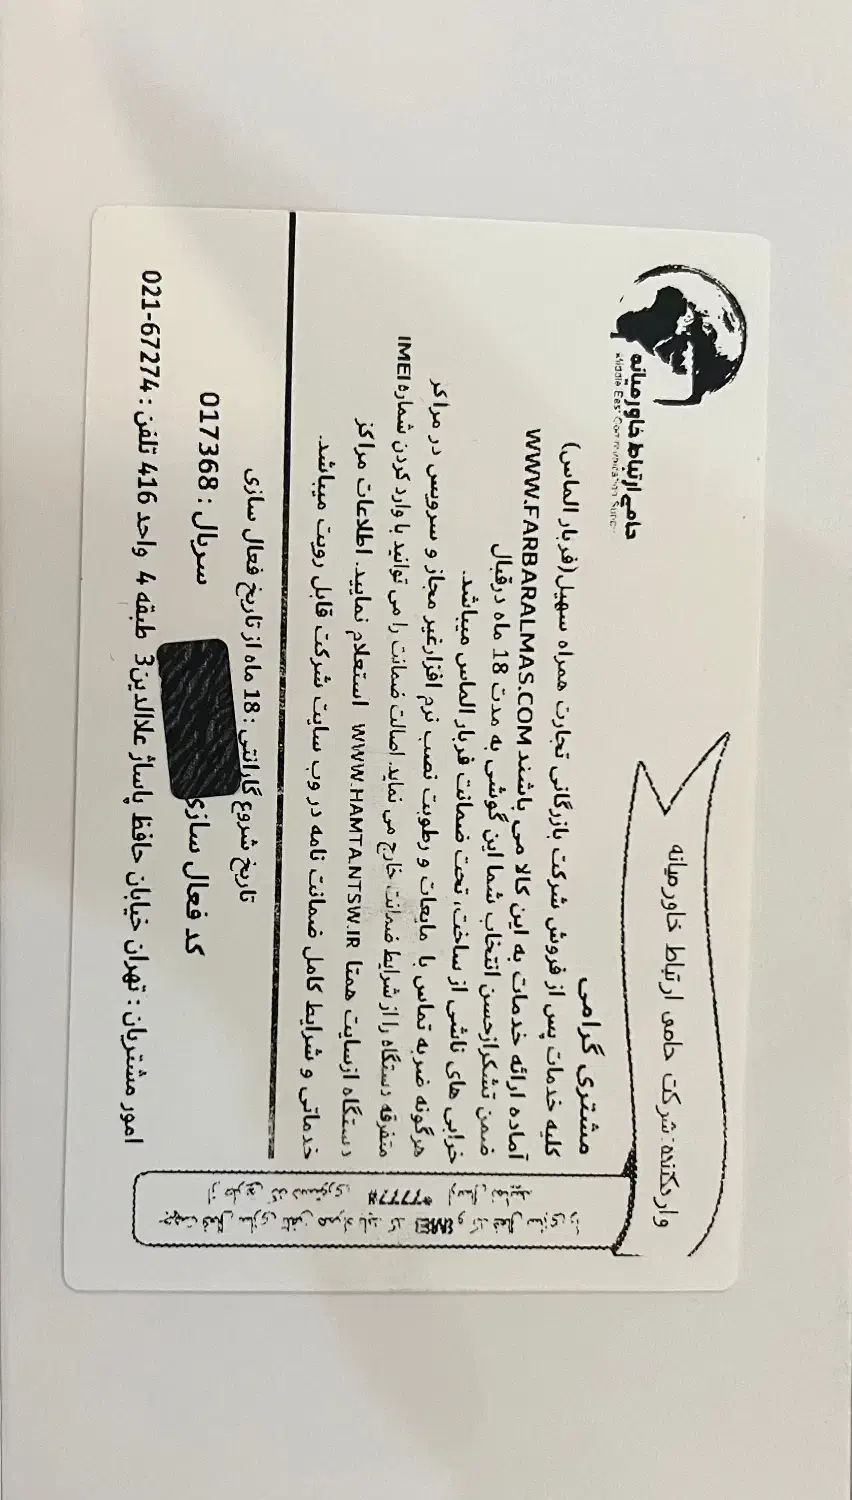 حامی ارتباط خاورمیانه
واردکننده: شرکت حامی ارتباط خاورمیانه
مشتری گرامی
کلیه خدمات پس از فروش شرکت بازرگانی تجارت همراه سهیل(فربار الماس)
آماده ارائه خدمات به این کالا می باشند WWW.FARBARALMAS.COM
ضمن تشکرازحسن انتخاب شما این گوشی به مدت 18 ماه درقبال
خرابی های ناشی از ساخت، تحت ضمانت فربار الماس میباشد.
هرگونه ضربه تماس با مایعات و رطوبت نصب نرم افزارغیر مجاز و سرویس در مراکز
متفرقه دستگاه را از شرایط ضمانت خارج می نماید. اصالت ضمانت را می توانید با وارد کردن شماره IMEI
دستگاه ازسایت همتا WWW.HAMTA.NTSW.IR استعلام نمایید. اطلاعات مراکز
خدماتی و شرایط کامل ضمانت نامه در وب سایت شرکت قابل رویت میباشد.
تاریخ شروع گارانتی : 18 ماه از تاریخ فعال سازی
کد فعال سازی
سریال : 017368
امور مشتریان : تهران خیابان حافظ پاساژ علاالدین3 طبقه 4 واحد 416 تلفن : 67274-021